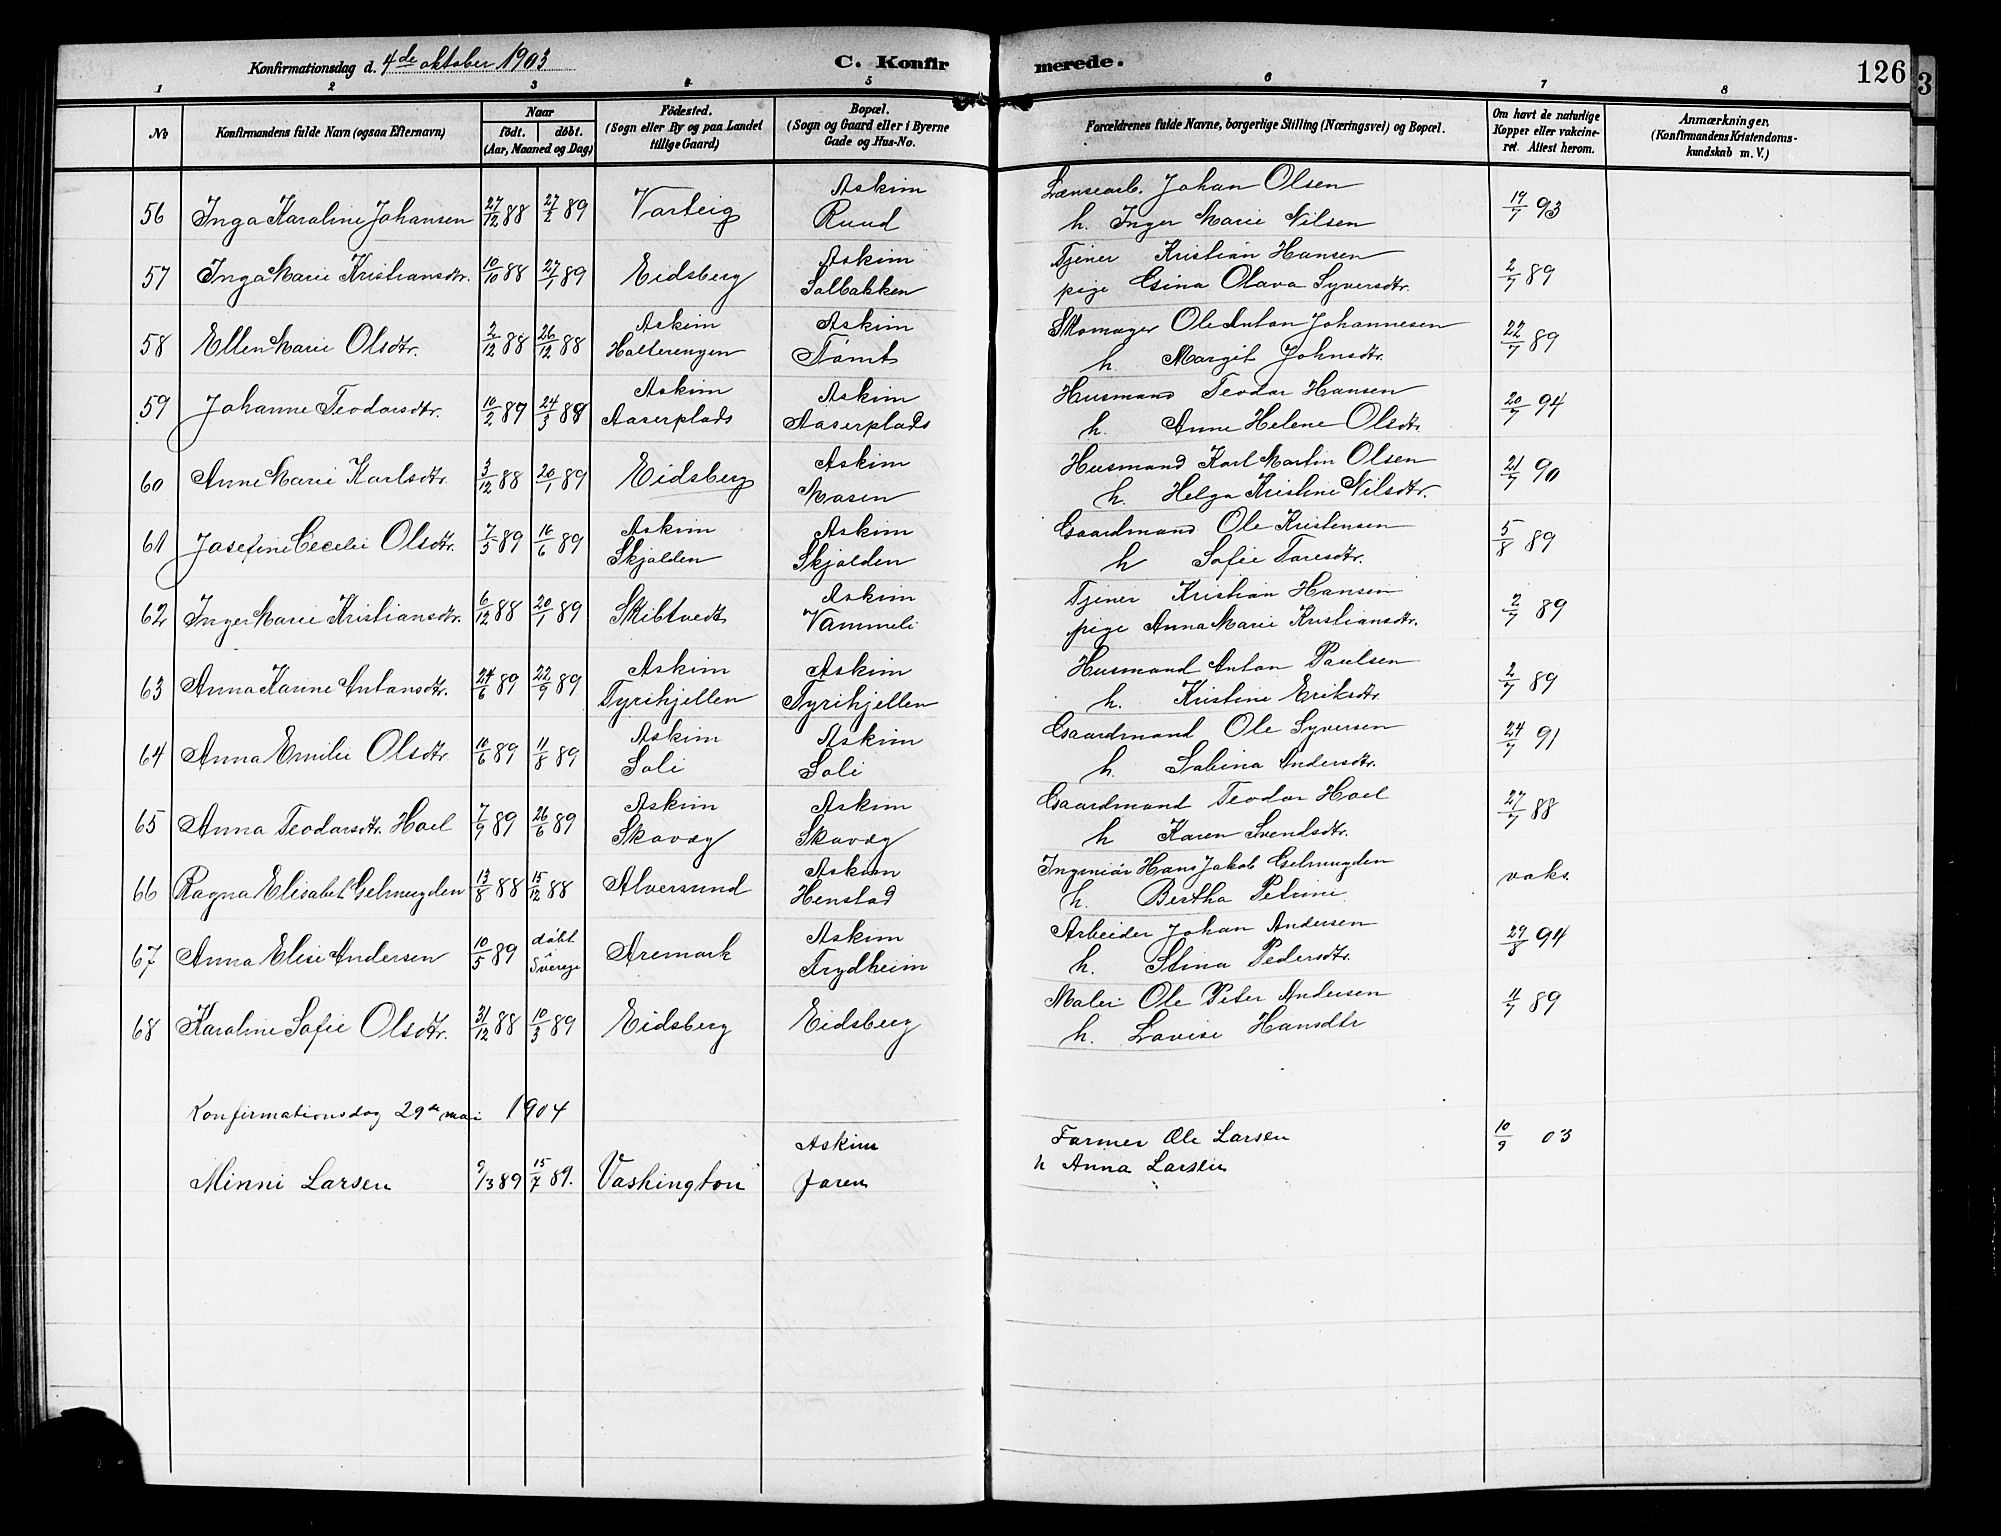 Konfirmationsdag d. 4de oktober 1903 C. Konfirmerede. 126
3
1 2 3 4 5 6 7 8
No Konfirmandens fulde Navn (ogsaa Efternavn) Naar født. døbt. (Aar, Maaned og Dag) Fødested. (Sogn eller By og paa Landet tillige Gaard) Bopæl. (Sogn og Gaard eller i Byerne Gade og Hus-No. Forældrenes fulde Navne, borgerlige Stilling (Næringsvei) og Bopæl. Om havt de naturlige Kopper eller vakcineret. Attest herom. Anmærkninger, (Konfirmandens Kristendomskundskab m. V.)
Askim Lænsearb. Johan Olsen
56 Inga Karoline Johansen 27/12 88 27/2 89 Varteig Ruud h. Inger Marie Nilsen 19/7 93
Askim Tjener Kristian Hansen
57 Inga Marie Kristiansdtr. 10/10 88 27/1 89 Eidsberg Solbakken pige Gina Olava Syversdtr. 2/7 89
Askim Askim Skomager Ole Anton Johannesen
58 Ellen Marie Olsdtr. 2/12 88 26/12 88 Halterengen Tømt h Margit Johnsdtr. 22/7 89
Askim Askim Husmand Teodor Hansen
59 Johanne Teodorsdtr. 10/2 89 24/3 89 Aaserplads Aaserplads h. Anne Helene Olsdtr. 20/7 94
Askim Husmand Karl Martin Olsen
60 Anne Marie Karlsdtr. 3/12 88 20/1 89 Eidsberg Mosen h. Helga Kristine Nilsdtr. 21/7 90
Askim Askim Gaardmand Ole Kristensen
61 Josefine Cecelie Olsdtr. 7/5 89 16/6 89 Skjolden Skjolden h Sofie Toresdtr. 5/8 89
Askim Tjener Kristian Hansen
62 Inger Marie Kristiansdtr. 6/12 88 20/1 89 Skibtvedt Vammeli pige Anna Marie Kristiansdtr. 2/7 89
Askim Askim Husmand Anton Paulsen
63 Anna Karine Antonsdtr. 24/6 89 22/9 89 Tyrihjellen Tyrihjellen h. Kristine Eriksdtr. 2/7 89
Askim Askim Gaardmand Ole Syversen
64 Anna Emilie Olsdtr. 10/6 89 11/8 89 Soli Soli h. Sabina Andersdtr. 24/7 91
Askim Askim Gaardmand Teodor Hoel
65 Anna Teodorsdtr. Hoel 7/9 89 26/6 89 Skovdy Skovdy h Karen Svendsdtr. 27/7 88
Askim Ingeniør Hans Jakob Gelmuyden
66 Ragna Elisabet Gelmuyden 13/8 88 15/12 88 Alversund Henstad h. Bertha Petrine vaks.
døbt Askim Arbeider Johan Andersen
67 Anna Elise Andersen 10/5 89 i Sverige Aremark Frydheim h. Stina Pedersdtr. 29/8 94
Maler Ole Peter Andersen
68 Karoline Sofie Olsdtr. 31/12 88 10/3 89 Eidsberg Eidsberg h. Lovise Hansdtr 11/7 89
Konfirmationsdag 29de mai 1904
Askim Farmer Ole Larsen 10/9 03
Minni Larsen 9/3 89 15/7 89. Vashington Joren h Anna Larsen